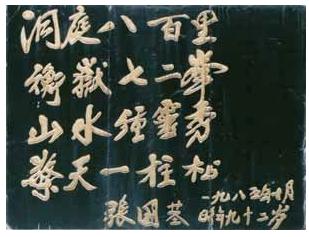 洞庭八百里
衡嶽七二峯
山水鍾靈秀
擎天一柱松
一九八五年十月
时年九十二岁
張国基